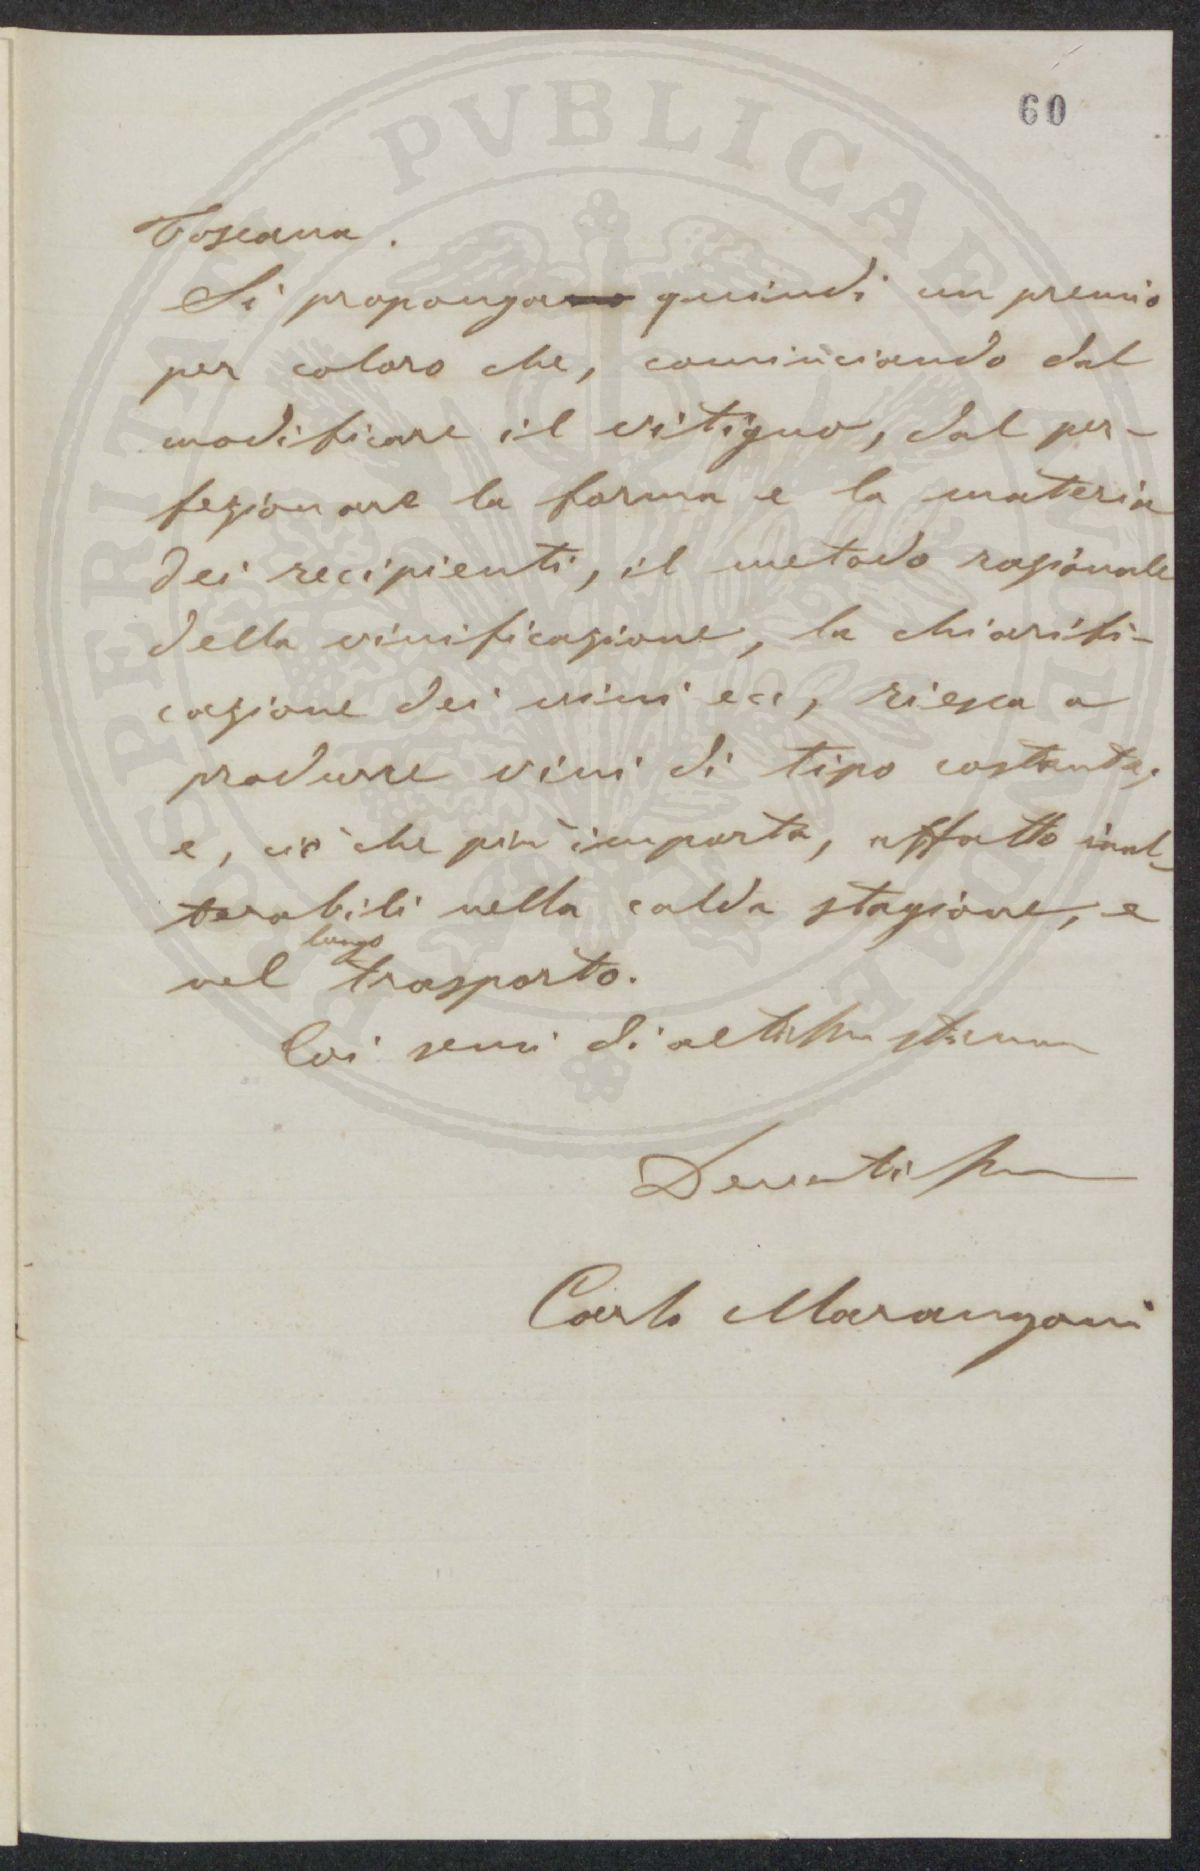 60
Toscana.
Si proponga quindi un premio
per coloro che, cominciando dal
modificare il vitigno, dal per-
fezionare la forma e la materia
dei recipienti, il metodo razionale
della vinificazione, la chiarifi-
cazione dei vini ecc, riesca a
produrre vini di tipo costante,
e, ciò che più importa, affatto inal-
terabili nella calda stagione, e
nel lungo trasporto.
Coi sensi di altissma stima
Devotissmo
Carlo Marangoni